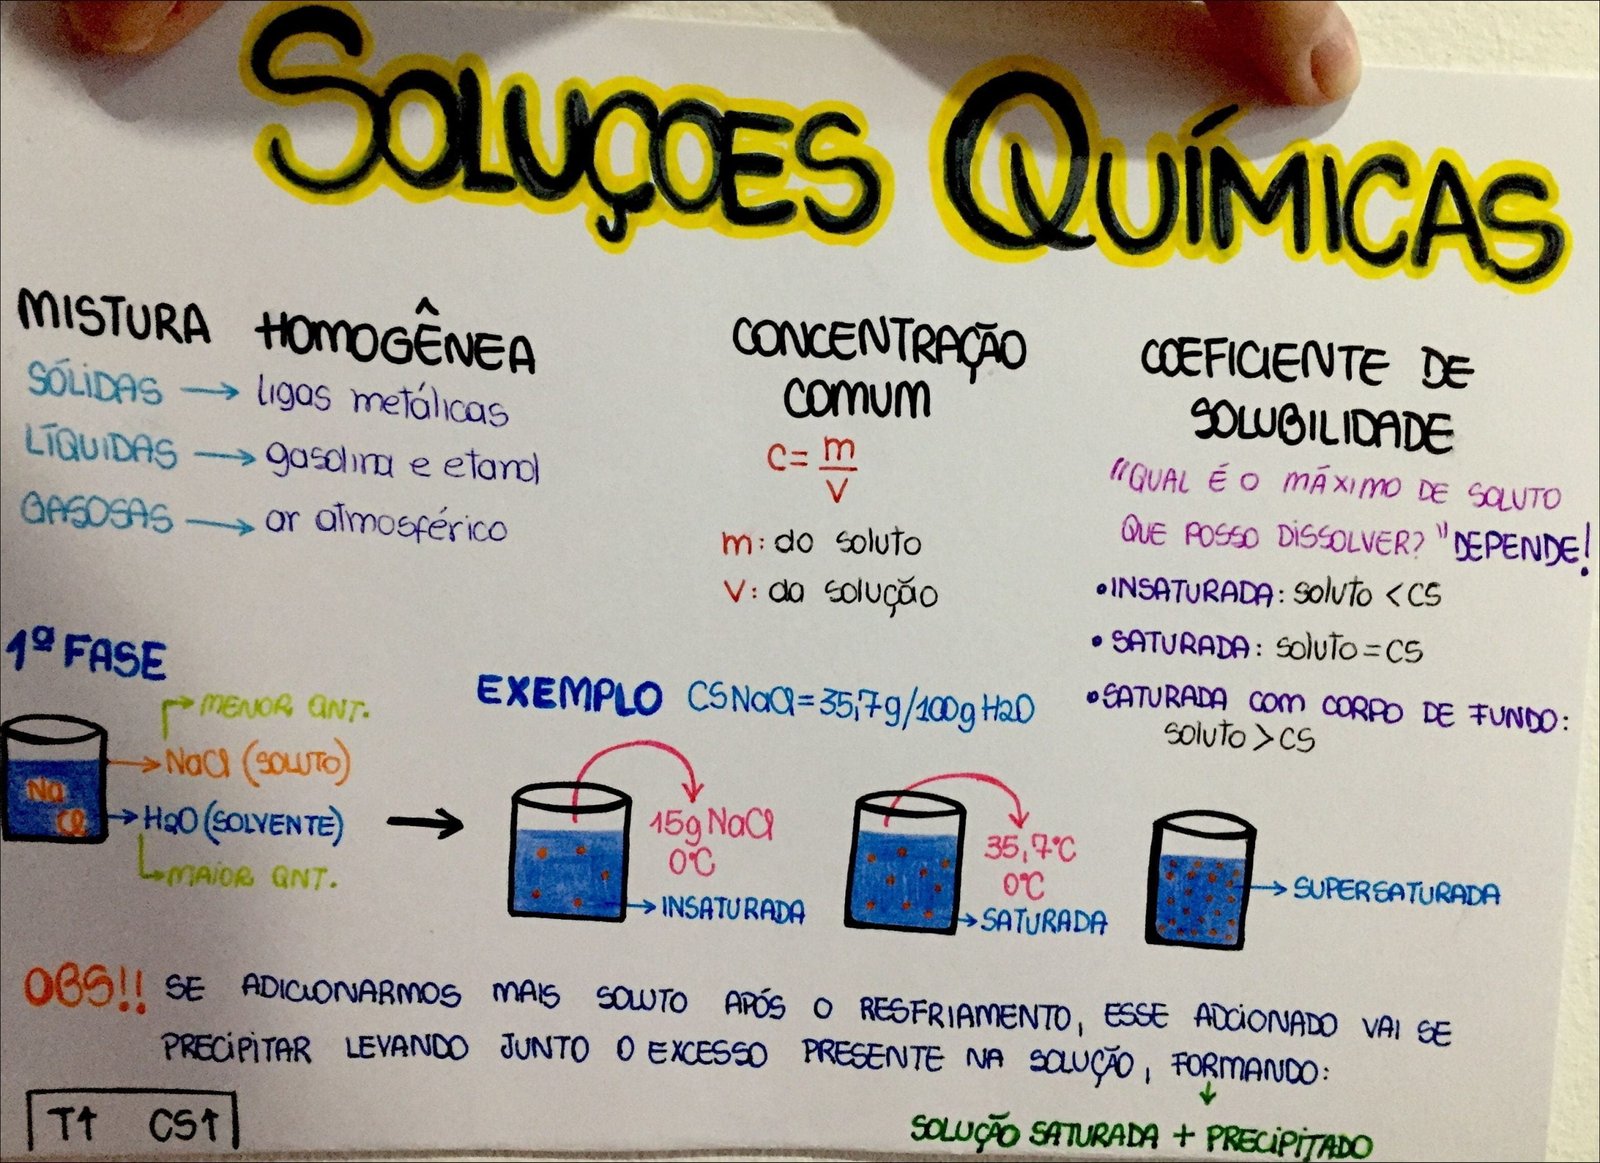 SOLUÇOES QUÍMICAS
MISTURA HOMOGÊNEA
SÓLIDAS → ligas metálicas
LÍQUIDAS → gasolina e etanol
GASOSAS → ar atmosférico
CONCENTRAÇÃO
COMUM
C = m
V
m: do soluto
V: da solução
COEFICIENTE DE
SOLUBILIDADE
"QUAL É O MÁXIMO DE SOLUTO
QUE POSSO DISSOLVER?" DEPENDE!
•INSATURADA: soluto < CS
•SATURADA: soluto = CS
•SATURADA COM CORPO DE FUNDO:
soluto > CS
1ª FASE
MENOR QNT.
NaCl (SOLUTO)
Na
Cl
H2O (SOLVENTE)
MAIOR QNT.
EXEMPLO CS NaCl = 35,7g/100g H2O
15g NaCl
0°C
INSATURADA
35,7°C
0°C
SATURADA
SUPERSATURADA
OBS!! SE ADICIONARMOS MAIS SOLUTO APÓS O RESFRIAMENTO, ESSE ADCIONADO VAI SE
PRECIPITAR LEVANDO JUNTO O EXCESSO PRESENTE NA SOLUÇÃO, FORMANDO:
SOLUÇÃO SATURADA + PRECIPITADO
T↑ CS↑